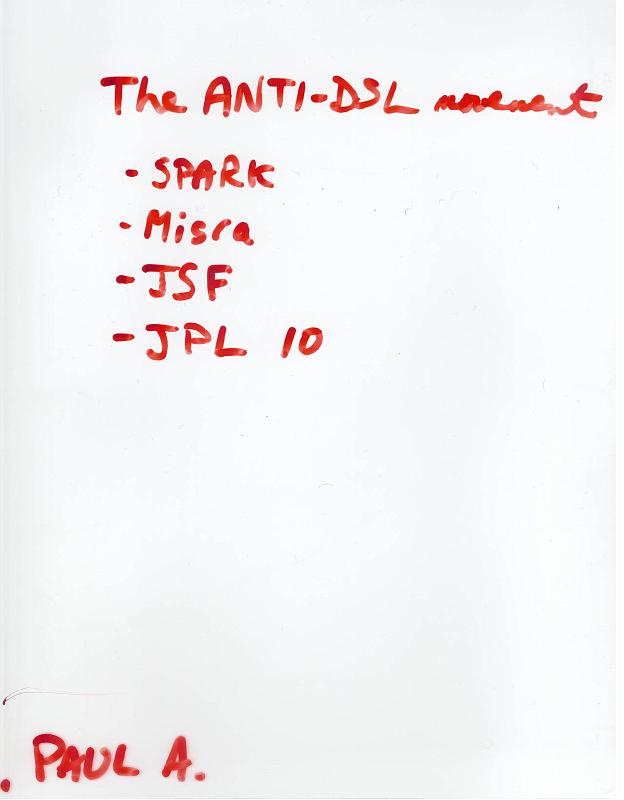 The ANTI-DSL movement
- SPARK
- Misra
- JSF
- JPL 10
. PAUL A.